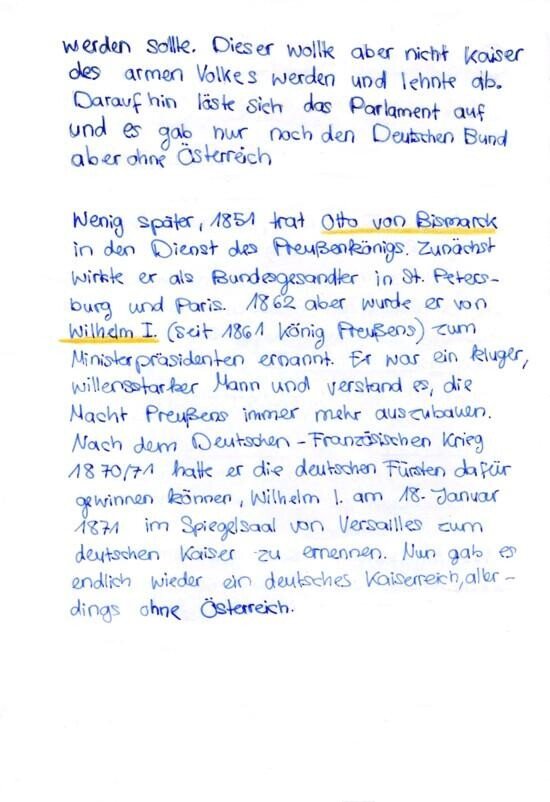 werden sollte. Dieser wollte aber nicht Kaiser
des armen Volkes werden und lehnte ab.
Daraufhin löste sich das Parlament auf
und es gab nur noch den Deutschen Bund
aber ohne Österreich
Wenig später, 1851 trat Otto von Bismarck
in den Dienst des Preußenkönigs. Zunächst
wirkte er als Bundesgesandter in St. Peters-
burg und Paris. 1862 aber wurde er von
Wilhelm I. (seit 1861 König Preußens) zum
Ministerpräsidenten ernannt. Er war ein kluger,
willensstarker Mann und verstand es, die
Macht Preußens immer mehr auszubauen.
Nach dem Deutschen-Französischen Krieg
1870/71 hatte er die deutschen Fürsten dafür
gewinnen können, Wilhelm I. am 18. Januar
1871 im Spiegelsaal von Versailles zum
deutschen Kaiser zu ernennen. Nun gab es
endlich wieder ein deutsches Kaiserreich, aller-
dings ohne Österreich.